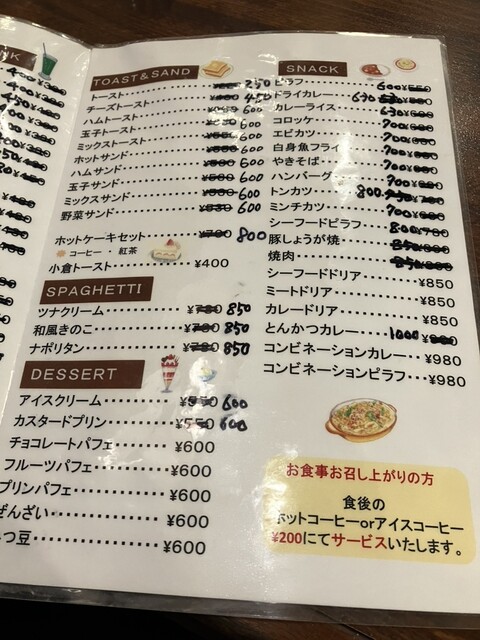 NK
TOAST & SAND
トースト 250
チーズトースト 450
ハムトースト 600
玉子トースト 600
ミックストースト 600
ホットサンド 600
ハムサンド 600
玉子サンド 600
ミックスサンド 600
野菜サンド 600
ホットケーキセット ¥700 800
コーヒー ・ 紅茶
小倉トースト ¥400
SPAGHETTI
ツナクリーム ¥780 850
和風きのこ ¥780 850
ナポリタン ¥780 850
DESSERT
アイスクリーム ¥550 600
カスタードプリン ¥550 600
チョコレートパフェ ¥600
フルーツパフェ ¥600
プリンパフェ ¥600
ぜんざい ¥600
つ豆 ¥600
SNACK
ピラフ 600
ドライカレー 670
カレーライス 630
コロッケ 700
エビカツ 700
白身魚フライ 700
やきそば 700
ハンバーグ 700
トンカツ 800
ミンチカツ 700
シーフードピラフ 800
豚しょうが焼 850
焼肉 850
シーフードドリア ¥850
ミートドリア ¥850
カレードリア ¥850
とんかつカレー 1000
コンビネーションカレー ¥980
コンビネーションピラフ ¥980
お食事お召し上がりの方
食後の
ホットコーヒーorアイスコーヒー
¥200にてサービスいたします。